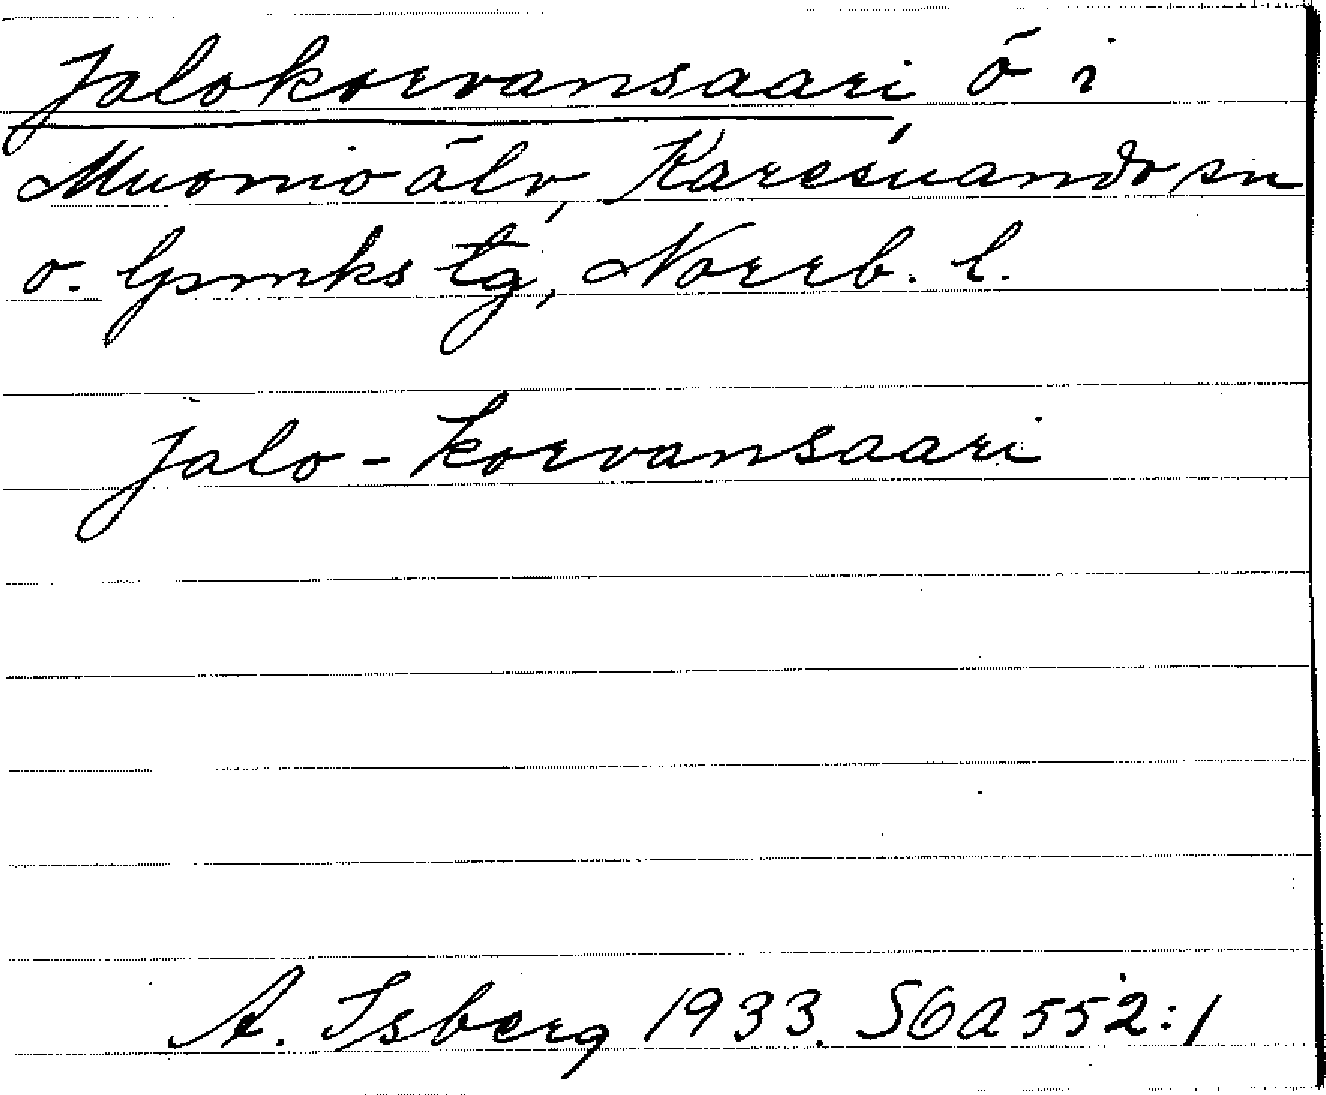 Jalokorvansaari, ö i
Muonio älv, Karesuando sn
o. lpmks tg, Norrb. l.
Jalo-korvansaari
A. Isberg 1933. SOA 552:1